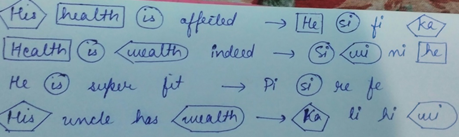 His health is affected → He si fi ka
Health is wealth indeed → Si wi ni he
He is super fit → Pi si re fe
His uncle has wealth → Ka li hi wi